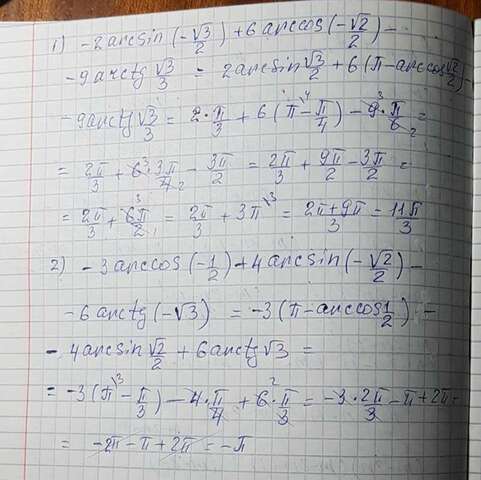 1) -2arcsin(-√3/2)+6arccos(-√2/2)-
-9arctg √3/3 = 2arcsin √3/2 +6(π-arccos √2/2)-
-9arctg √3/3 = 2·π/3 + 6(π\4 - π/4) - 9³·π/6₂ =
= 2π/3 + 6³·3π/4₂ - 3π/2 = 2π/3 + 9π/2 - 3π/2 =
= 2π/3 + 6³π/2₁ = 2π/3 + 3π\3 = 2π+9π/3 = 11π/3
2) -3arccos(-1/2)+4arcsin(-√2/2)-
-6arctg(-√3) = -3(π-arccos 1/2)-
-4arcsin √2/2 + 6arctg √3 =
= -3(π\3 - π/3) - 4·π/4 + 6²·π/3 = -3·2π/3 - π + 2π =
= -2π - π + 2π = -π